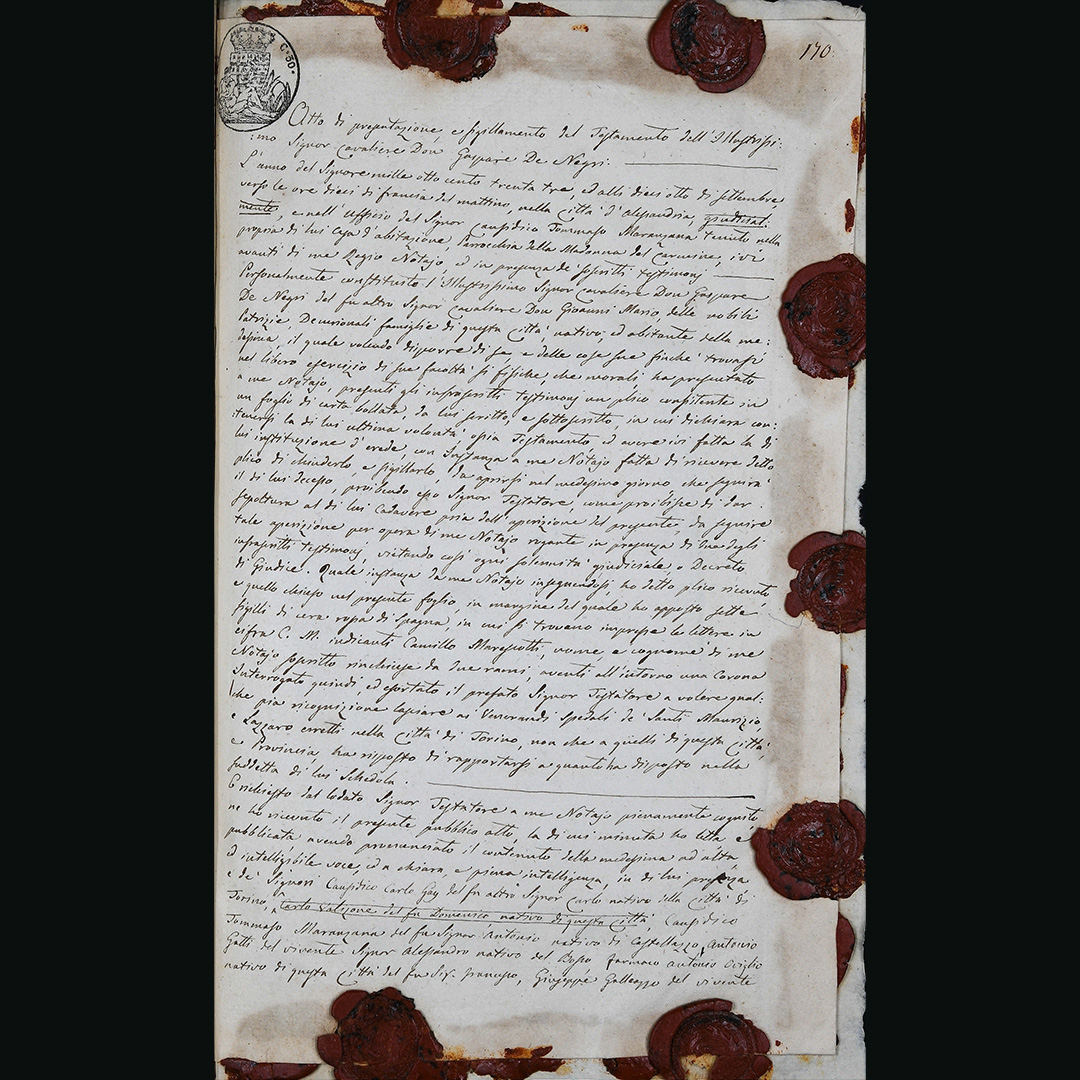 C. 50.
170.
Atto di presentazione e sigillamento del Testamento dell'Illustrissi:
:mo Signor Cavaliere Don Gaspare De Negri.
L'anno del Signore mille otto cento trenta tre, ed alli dieci otto di settembre,
verso le ore dieci di francia del mattino, nella Città d'Alessandria, giudizial:
mente, e nell'ufficio del Signor Causidico Tommaso Maranzana tenuto nella
propria di lui casa d'abitazione, Parrocchia della Madonna del Carmine, ivi
avanti di me Regio Notajo ed in presenza de' sottoscritti testimonj
Personalmente constituito l'Illustrissimo Signor Cavaliere Don Gaspare
De Negri del fu altro Signor Cavaliere Don Gioanni Mario, delle nobili
Patrizie, Decurionali famiglie di questa Città, nativo, ed abitante della me:
desima, il quale volendo disporre di se, e delle cose sue finche trovasi
nel libero esercizio di sue facoltà si fisiche, che morali ha presentato
a me Notajo, presenti gli infrascritti testimonj un plico consistente in
un foglio di carta bollata, da lui scritto, e sottoscritto, in cui dichiara con:
tenersi la di lui ultima volontà, ossia Testamento ed avere ivi fatta la di
lui instituzione d'erede, con Instanza a me Notajo fatta di ricevere detto
plico di chiuderlo, e sigillarlo, da aprirsi nel medesimo giorno che seguirà
il di lui decesso, proibendo esso Signor Testatore, come proibisce di dar
sepoltura al di lui Cadavere pria dell'aperizione del presente, da seguire
tale aperizione per opera di me Notajo rogante in presenza di due degli
infrascritti testimonj, vietando così ogni solennità giudiziale o Decreto
di Giudice. Quale instanza da me Notajo inseguendosi, ho detto plico ricevuto
e quello chiuso nel presente foglio, in margine del quale ho apposto sette
sigilli di cera rossa di Spagna, in cui si trovano impresse le lettere in
cifra C. M. indicanti Camillo nome e cognome di me
Notajo sottoscritto rinchiuse da due rami, aventi all'intorno una Corona
Interrogato quindi, ed esortato il prefato Signor Testatore a volere qual:
che pia ricognizione lasciare ai Venerandi Spedali de' Santi Maurizio,
e Lazzaro eretti nella Città di Torino, non che a quelli di questa Città,
e Provincia, ha risposto di rapportarsi a quanto ha disposto nella
suddetta di lui Schedola.
E richiesto dal lodato Signor Testatore a me Notajo pienamente cognito
ne ho ricevuto il presente pubblico atto, la di cui minuta ho letta e
pubblicata avendo pronunciato il contenuto della medesima ad alta
ed intelligibile voce, ed a chiara, e piena intelligenza, in di lui presenza
e de' Signori Causidico Carlo Gay del fu altro Signor Carlo nativo della Città di
Torino, Carlo del fu Domenico nativo di questa città, Causidico
Tommaso Maranzana del fu Signor Antonio nativo di Castellazzo, Antonio
Gatti del vivente Signor Alessandro nativo del Bosco Antonio
nativo di questa Città del fu Sig. Francesco, Giuseppe Galleazzo del vivente